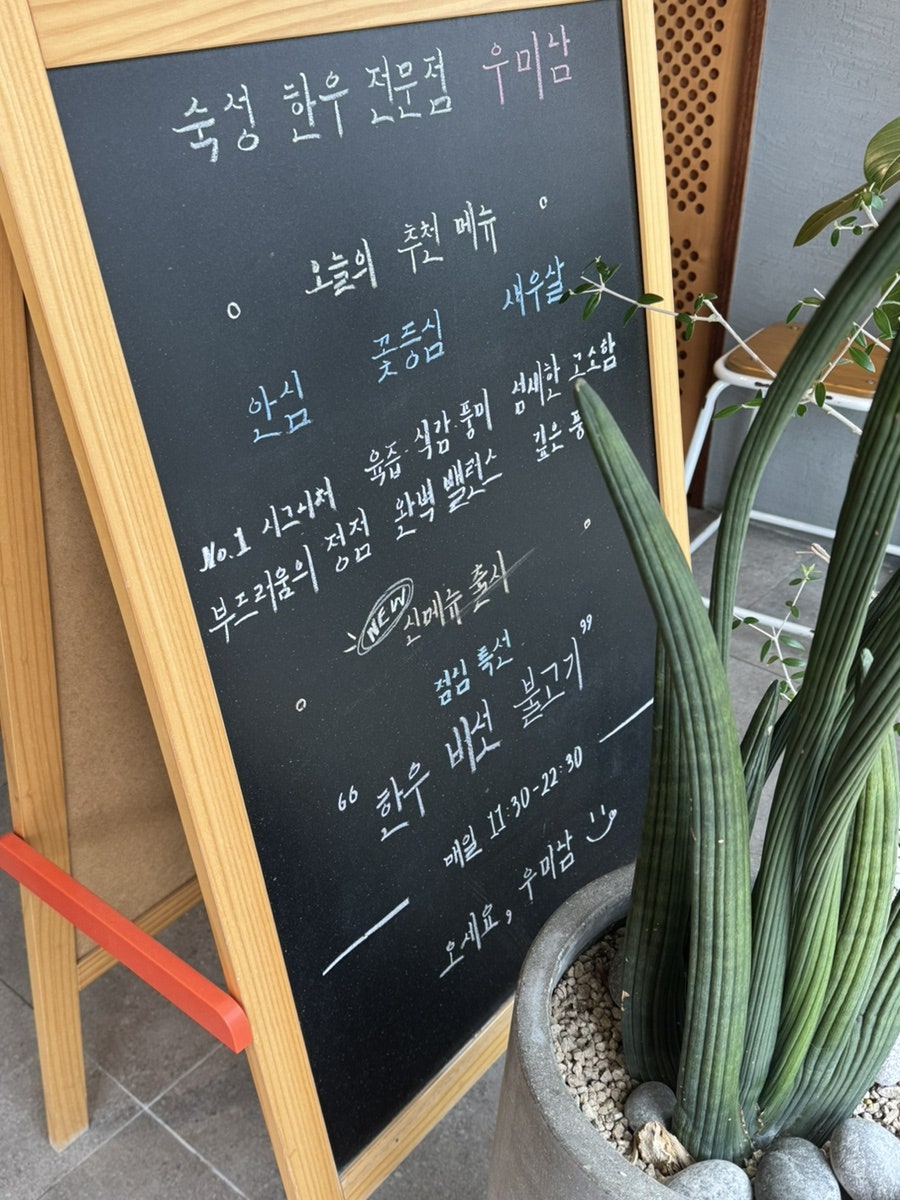 숙성 한우 전문점 우미남
오늘의 추천 메뉴
안심 꽃등심 새우살
No.1 시그니처 육즙·식감·풍미 섬세한 고소함
부드러움의 정점 완벽 밸런스 깊은 풍
NEW 신메뉴 출시
점심 특선
“ 한우 비선 불고기 ”
매일 11:30-22:30
오세요, 우미남